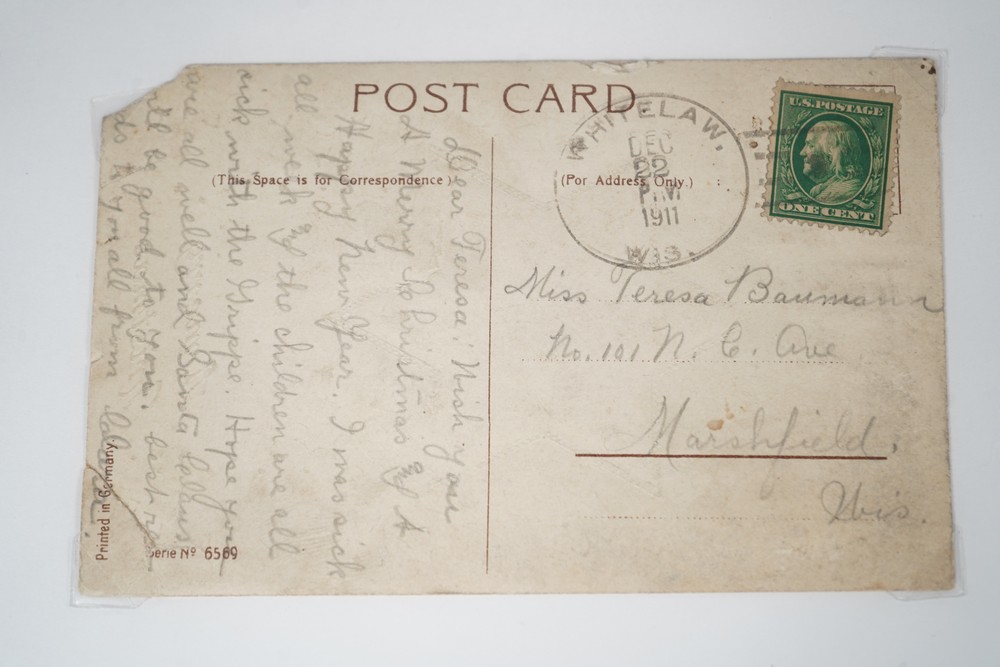 POST CARD.
(This Space is for Correspondence)
(For Address Only.)
WHITELAW,
DEC
22
PM
1911
WIS.
U.S. POSTAGE
ONE CENT
Miss Teresa Baumann
No. 101 N. C. Ave
Marshfield.
Wis.
Dear Teresa; Wish you
A Merry Christmas & A
Happy New Year. I was sick
all week & the children are all
sick with the Grippe. Hope you
are all well and Santa Claus
be good to you. best
to you all from
Printed in Germany.
Serie No 6569